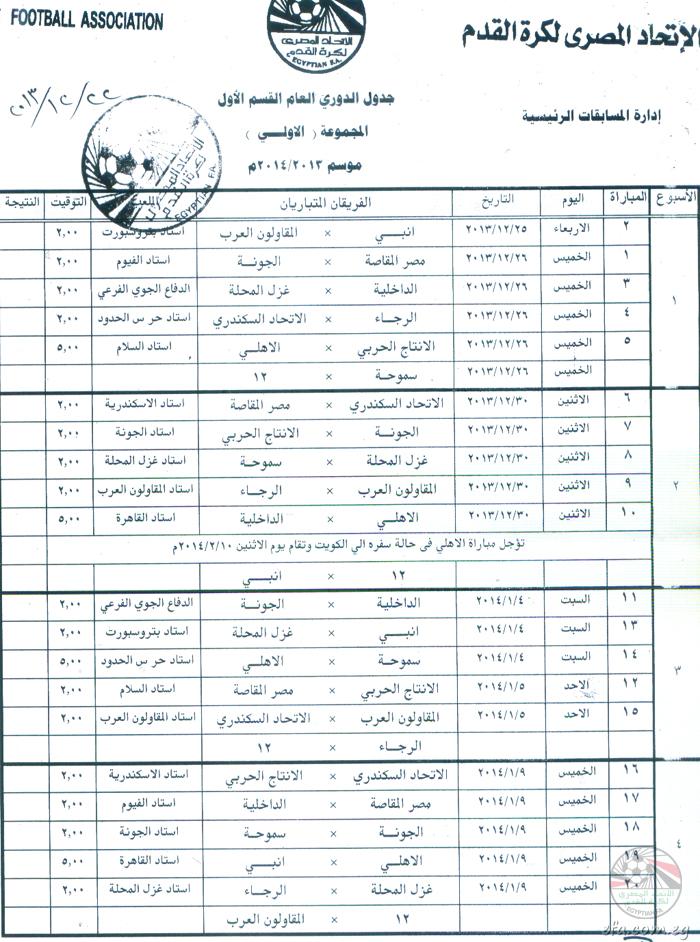 FOOTBALL ASSOCIATION
الإتحاد المصرى لكرة القدم
الإتحاد المصرى
لكرة القدم
EGYPTIAN F.A.
إدارة المسابقات الرئيسية
جدول الدوري العام القسم الأول
المجموعة ( الاولي )
موسم ٢٠١٤/٢٠١٣م
٢٠١٣/١٢/٢٢
الأسبوع المباراة اليوم التاريخ الفريقان المتباريان الملعب التوقيت النتيجة
١
٢ الاربعاء ٢٠١٣/١٢/٢٥ انبي × المقاولون العرب استاد بتروسبورت ٢,٠٠
١ الخميس ٢٠١٣/١٢/٢٦ مصر المقاصة × الجونة استاد الفيوم ٢,٠٠
٣ الخميس ٢٠١٣/١٢/٢٦ الداخلية × غزل المحلة الدفاع الجوي الفرعي ٢,٠٠
٤ الخميس ٢٠١٣/١٢/٢٦ الرجاء × الاتحاد السكندري استاد حرس الحدود ٢,٠٠
٥ الخميس ٢٠١٣/١٢/٢٦ الانتاج الحربي × الاهلي استاد السلام ٥,٠٠
الخميس ٢٠١٣/١٢/٢٦ سموحة × ١٢
٢
٦ الاثنين ٢٠١٣/١٢/٣٠ الاتحاد السكندري × مصر المقاصة استاد الاسكندرية ٢,٠٠
٧ الاثنين ٢٠١٣/١٢/٣٠ الجونة × الانتاج الحربي استاد الجونة ٢,٠٠
٨ الاثنين ٢٠١٣/١٢/٣٠ غزل المحلة × سموحة استاد غزل المحلة ٢,٠٠
٩ الاثنين ٢٠١٣/١٢/٣٠ المقاولون العرب × الرجاء استاد المقاولون العرب ٢,٠٠
١٠ الاثنين ٢٠١٣/١٢/٣٠ الاهلي × الداخلية استاد القاهرة ٥,٠٠
تؤجل مباراة الاهلي فى حالة سفره الي الكويت وتقام يوم الاثنين ٢٠١٤/٢/١٠م
١٢ × انبي
٣
١١ السبت ٢٠١٤/١/٤ الداخلية × الجونة الدفاع الجوي الفرعي ٢,٠٠
١٣ السبت ٢٠١٤/١/٤ انبي × غزل المحلة استاد بتروسبورت ٢,٠٠
١٤ السبت ٢٠١٤/١/٤ سموحة × الاهلي استاد حرس الحدود ٥,٠٠
١٢ الاحد ٢٠١٤/١/٥ الانتاج الحربي × مصر المقاصة استاد السلام ٢,٠٠
١٥ الاحد ٢٠١٤/١/٥ المقاولون العرب × الاتحاد السكندري استاد المقاولون العرب ٢,٠٠
الرجاء × ١٢
٤
١٦ الخميس ٢٠١٤/١/٩ الاتحاد السكندري × الانتاج الحربي استاد الاسكندرية ٢,٠٠
١٧ الخميس ٢٠١٤/١/٩ مصر المقاصة × الداخلية استاد الفيوم ٢,٠٠
١٨ الخميس ٢٠١٤/١/٩ الجونة × سموحة استاد الجونة ٢,٠٠
١٩ الخميس ٢٠١٤/١/٩ الاهلي × انبي استاد القاهرة ٥,٠٠
٢٠ الخميس ٢٠١٤/١/٩ غزل المحلة × الرجاء استاد غزل المحلة ٢,٠٠
١٢ × المقاولون العرب
efa.com.eg